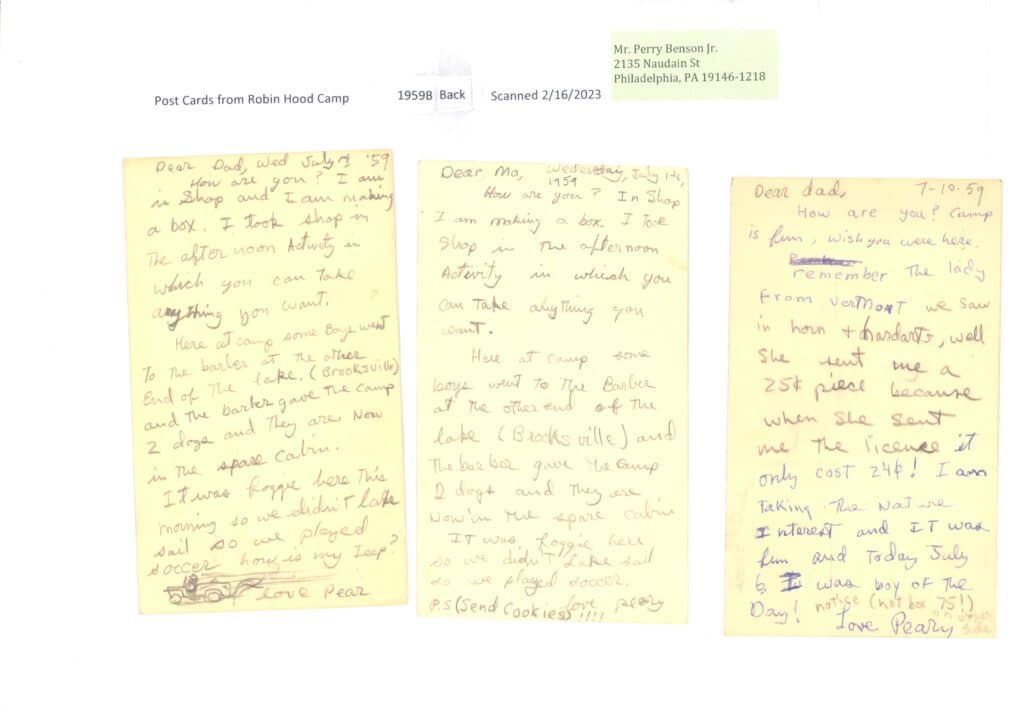 Mr. Perry Benson Jr.
2135 Naudain St
Philadelphia, PA 19146-1218
Post Cards from Robin Hood Camp
1959B Back
Scanned 2/16/2023
Dear Dad, Wed July 1 '59
How are you? I am
in Shop and I am making
a box. I took shop in
The after noon Activity in
which you can Take
anything you want.
Here at camp some Boys went
To the barber at The other
End of The lake. (Brooksville)
and the barber gave The camp
2 dogs and They are Now
in The spare cabin.
It was foggie here This
morning so we didn't lake
sail so we played
soccer how is my Jeep?
love Pear
Dear Ma, Wedensday, July 1st,
1959
How are you? In Shop
I am making a box. I Took
Shop in The afternoon
Activity in which you
can Take anything you
want.
Here at camp some
boys went to The Barber
at The other end of The
lake (Brooksville) and
The barber gave The camp
2 dogs and They are
Now in The spare cabin
It was foggie here
so we didn't lake sail
so we played soccer.
love peary
P.S (Send Cookies) !!!!
Dear dad, 7-10-59
How are you? Camp
is fun, wish you were here.
remember The lady
From Vermont we saw
in horn + hardarts, well
She sent me a
25¢ piece because
when She sent
me The licence it
only cost 24¢! I am
Taking The Nature
Interest and IT was
fun and Today July
6, I was boy of The
Day! notise (not box 75!)
on other
side
Love Peary